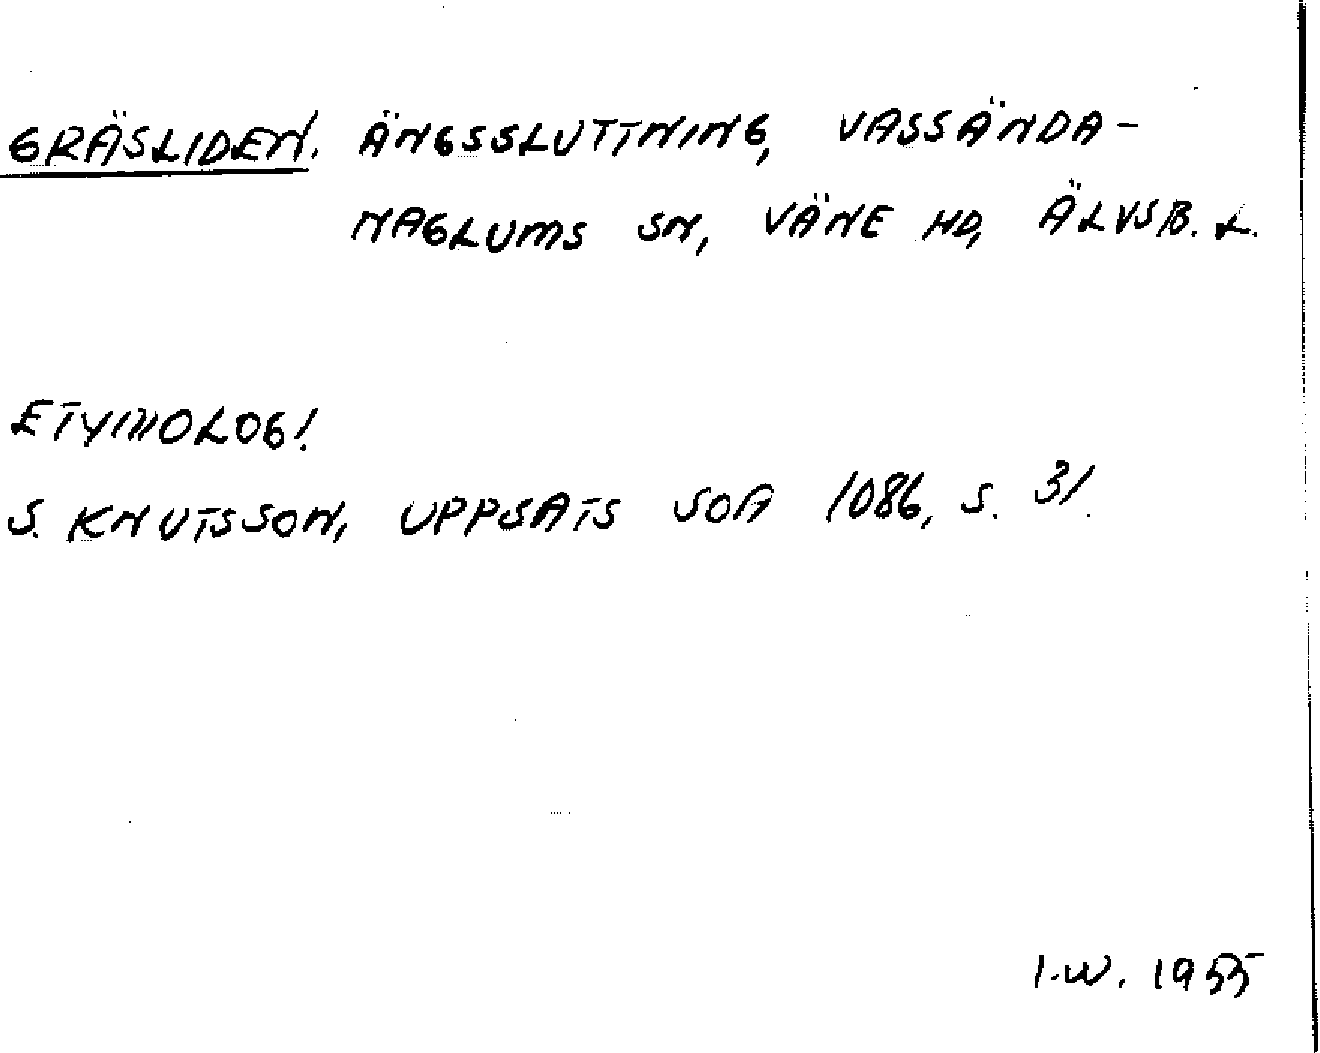 GRÄSLIDEN. ÄNGSSLUTTNING, VASSÄNDA-
NAGLUMS SN, VÄNE HD, ÄLVSB. L.
ETYMOLOG!
S. KNUTSSON, UPPSATS SOA 1086, S. 31.
I.W. 1955